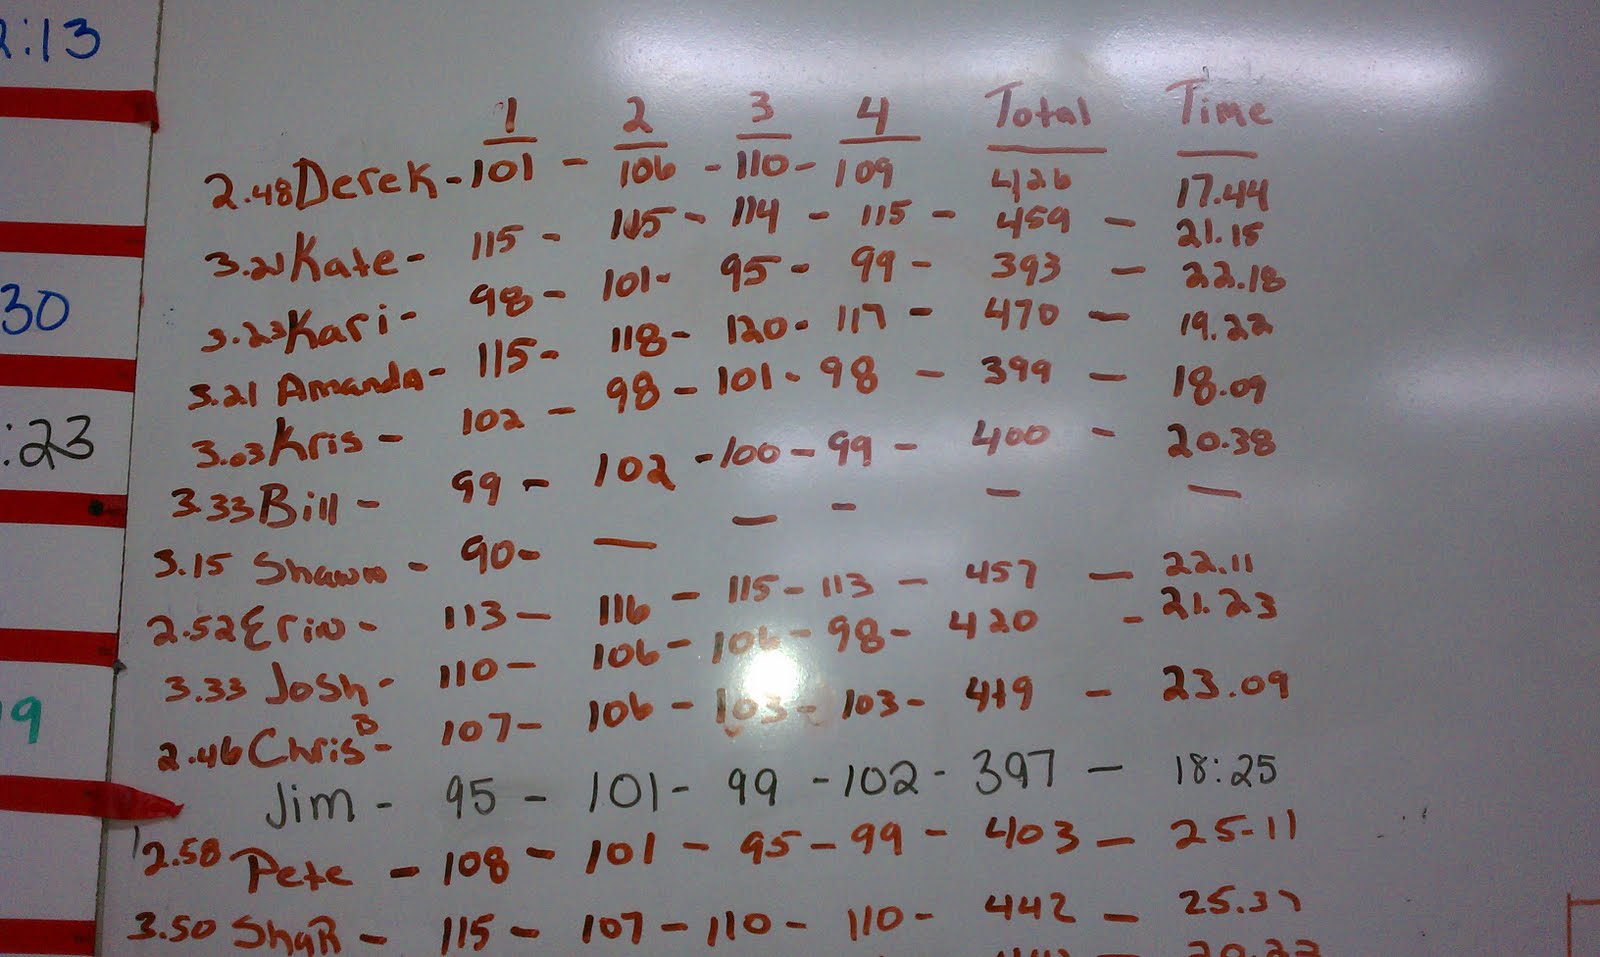 2:13
30
:23
9
1 2 3 4 Total Time
2.48 Derek - 101 - 106 - 110 - 109 426 17.44
3.21 Kate - 115 - 115 - 114 - 115 - 459 - 21.15
3.23 Kari - 98 - 101 - 95 - 99 - 393 - 22.18
3.21 Amanda - 115 - 118 - 120 - 117 - 470 - 19.22
3.03 Kris - 102 - 98 - 101 - 98 - 399 - 18.09
3.33 Bill - 99 - 102 - 100 - 99 - 400 - 20.38
3.15 Shawn - 90 - — — - — —
2.52 Erin - 113 - 116 - 115 - 113 - 457 - 22.11
3.33 Josh - 110 - 106 - 106 - 98 - 420 - 21.23
2.46 Chris B - 107 - 106 - 103 - 103 - 419 - 23.09
Jim - 95 - 101 - 99 - 102 - 397 - 18:25
2.58 Pete - 108 - 101 - 95 - 99 - 403 - 25-11
3.50 ShaR - 115 - 107 - 110 - 110 - 442 - 25.37